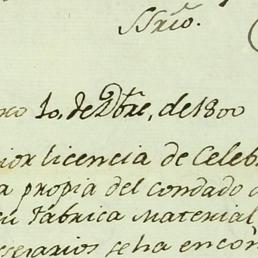 SSrio.
ro 10, de Dbre, de 1800
ior licencia de Celebr
a propia del condado d
su Fabrica Material,
esesarios se ha encon